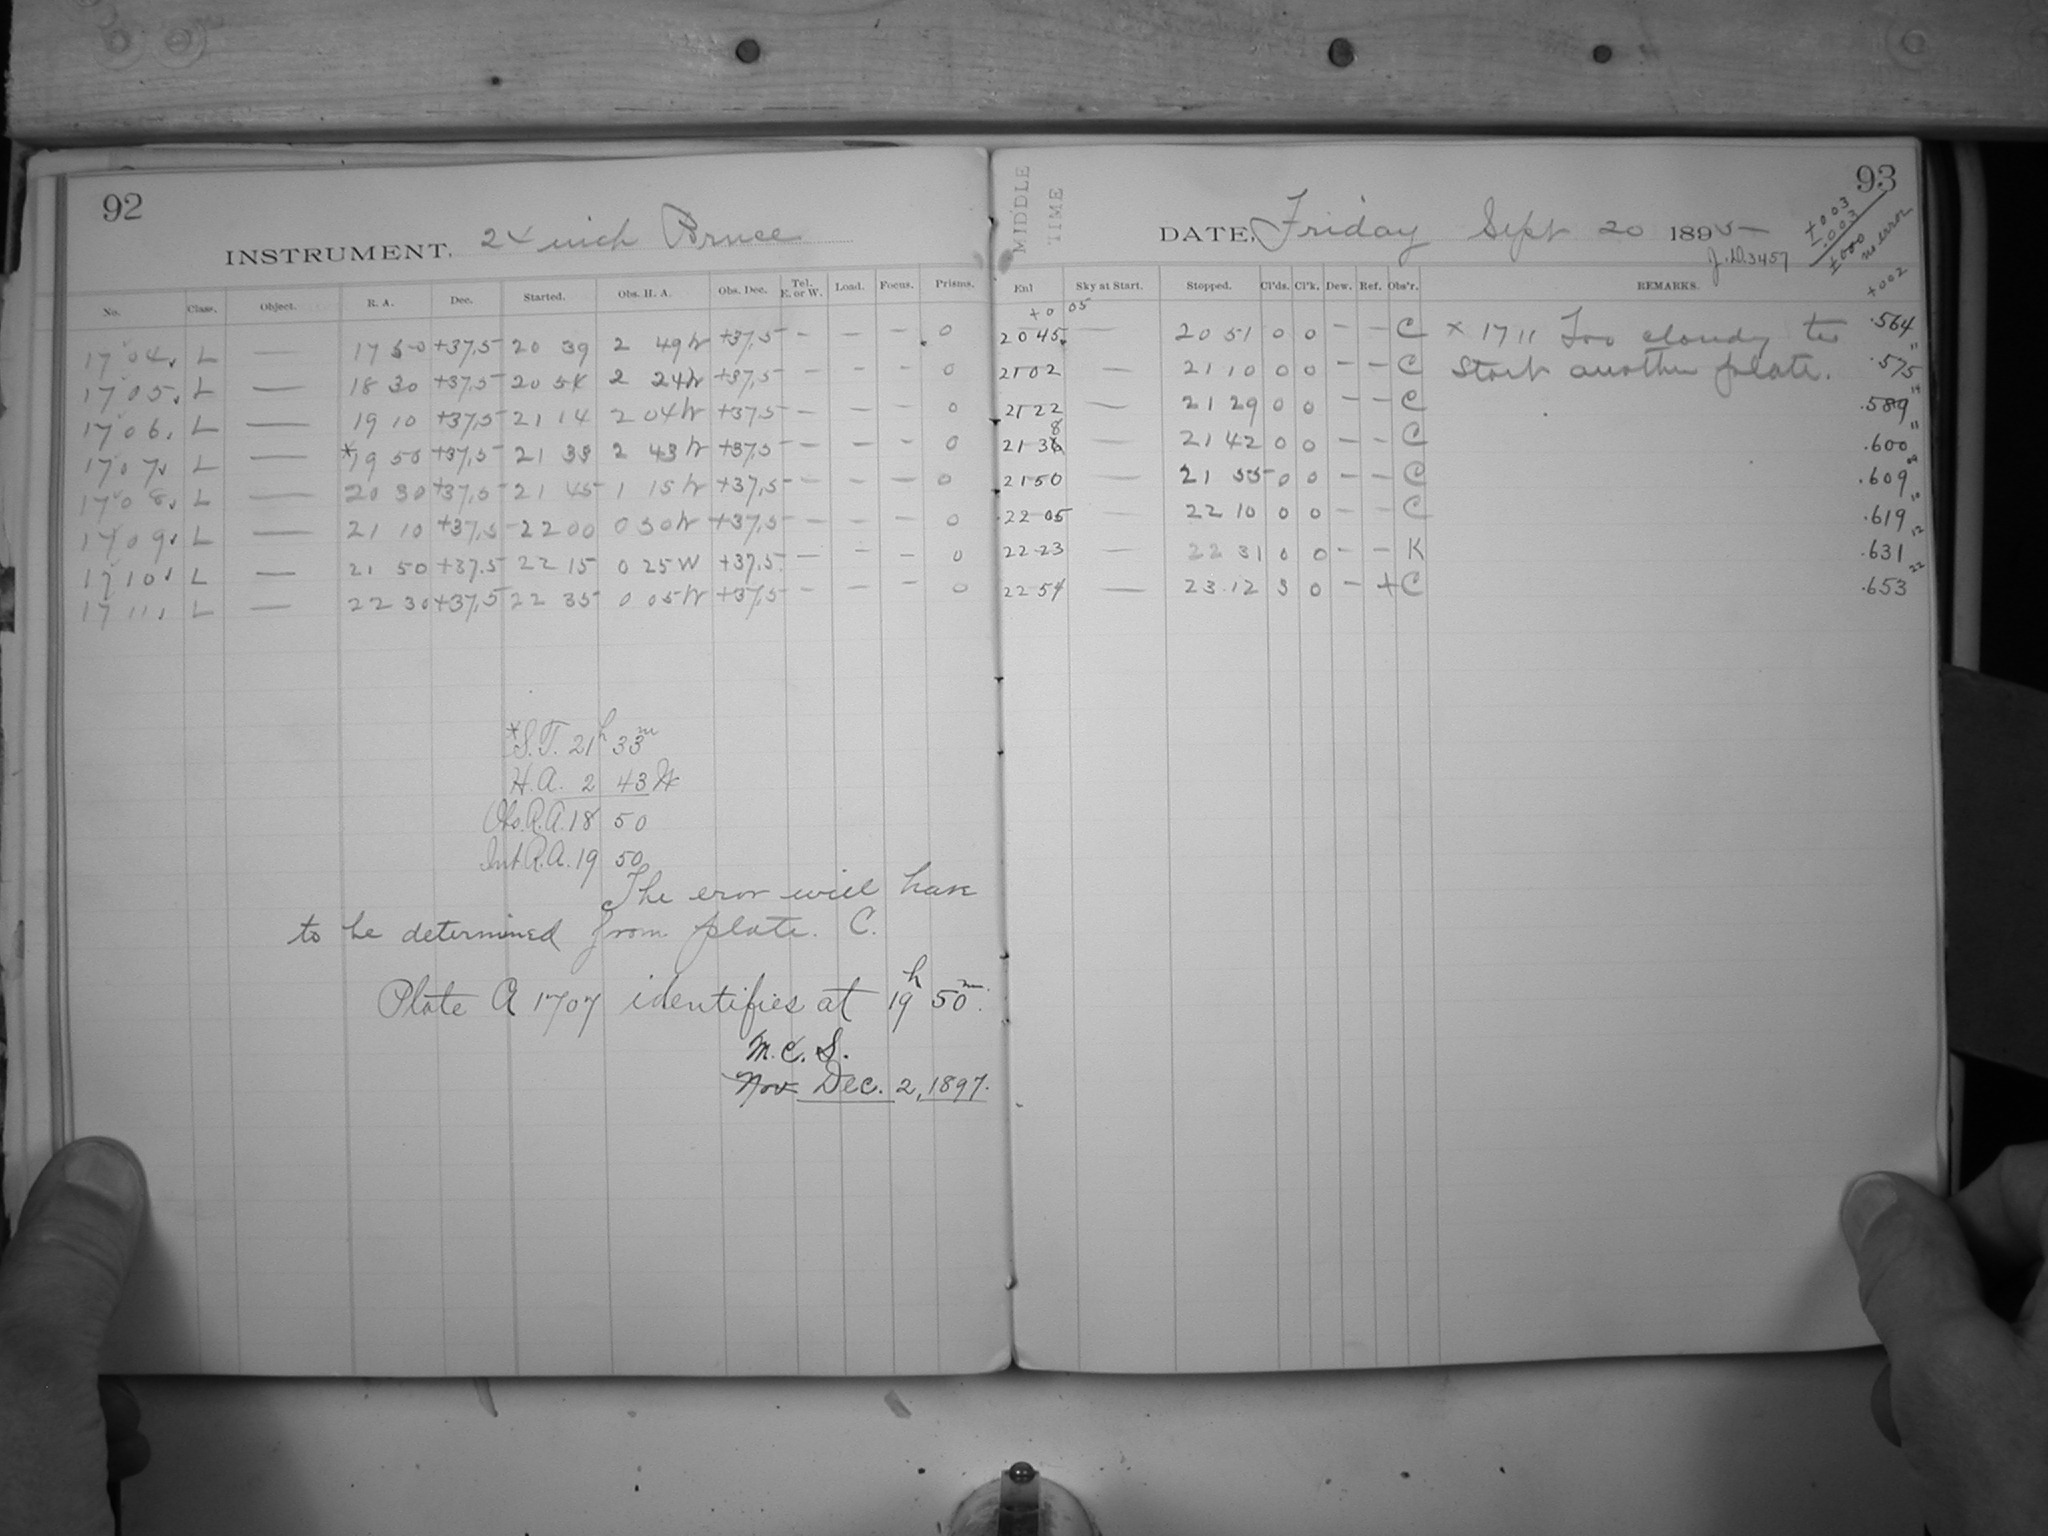 92
INSTRUMENT, 24 inch Bruce
No. Class. Object. R. A. Dec. Started. Obs. H. A. Obs. Dec. Tel. E. or W. Load. Focus. Prisms.
1704 L — 17 50 +37.5 20 39 2 49 W +37.5 — — — 0
1705 L — 18 30 +37.5 20 54 2 24 W +37.5 — — — 0
1706 L — 19 10 +37.5 21 14 2 04 W +37.5 — — — 0
1707 L — *19 50 +37.5 21 33 2 43 W +37.5 — — — 0
1708 L — 20 30 +37.5 21 45 1 15 W +37.5 — — — 0
1709 L — 21 10 +37.5 22 00 0 50 W +37.5 — — — 0
1710 L — 21 50 +37.5 22 15 0 25 W +37.5 — — — 0
1711 L — 22 30 +37.5 22 35 0 05 W +37.5 — — — 0
*S.T. 21h 33m
H.A. 2 43 W
Obs. R.A. 18 50
Int. R.A. 19 50
The eror will have
to be determined from plate. C.
Plate A 1707 identifies at 19h 50m.
M. C. S.
Nov Dec. 2, 1897.
MIDDLE
TIME
93
DATE, Friday Sept 20 1895
J.D. 3457
+003
±.003
±000
no error
+002
Enl Sky at Start. Stopped. Cl'ds. Cl'k. Dew. Ref. Obs'r. REMARKS.
+0 05
20 45 — 20 51 0 0 — — C × 1711 Too cloudy to .564
21 02 — 21 10 0 0 — — C start another plate. .575 11
21 22 — 21 29 0 0 — — C .589 14
21 36 8 — 21 42 0 0 — — C .600 11
21 50 — 21 55 0 0 — — C .609 09
22 05 — 22 10 0 0 — — C .619 10
22 23 — 22 31 0 0 — — K .631 12
22 54 — 23.12 3 0 — + C .653 22